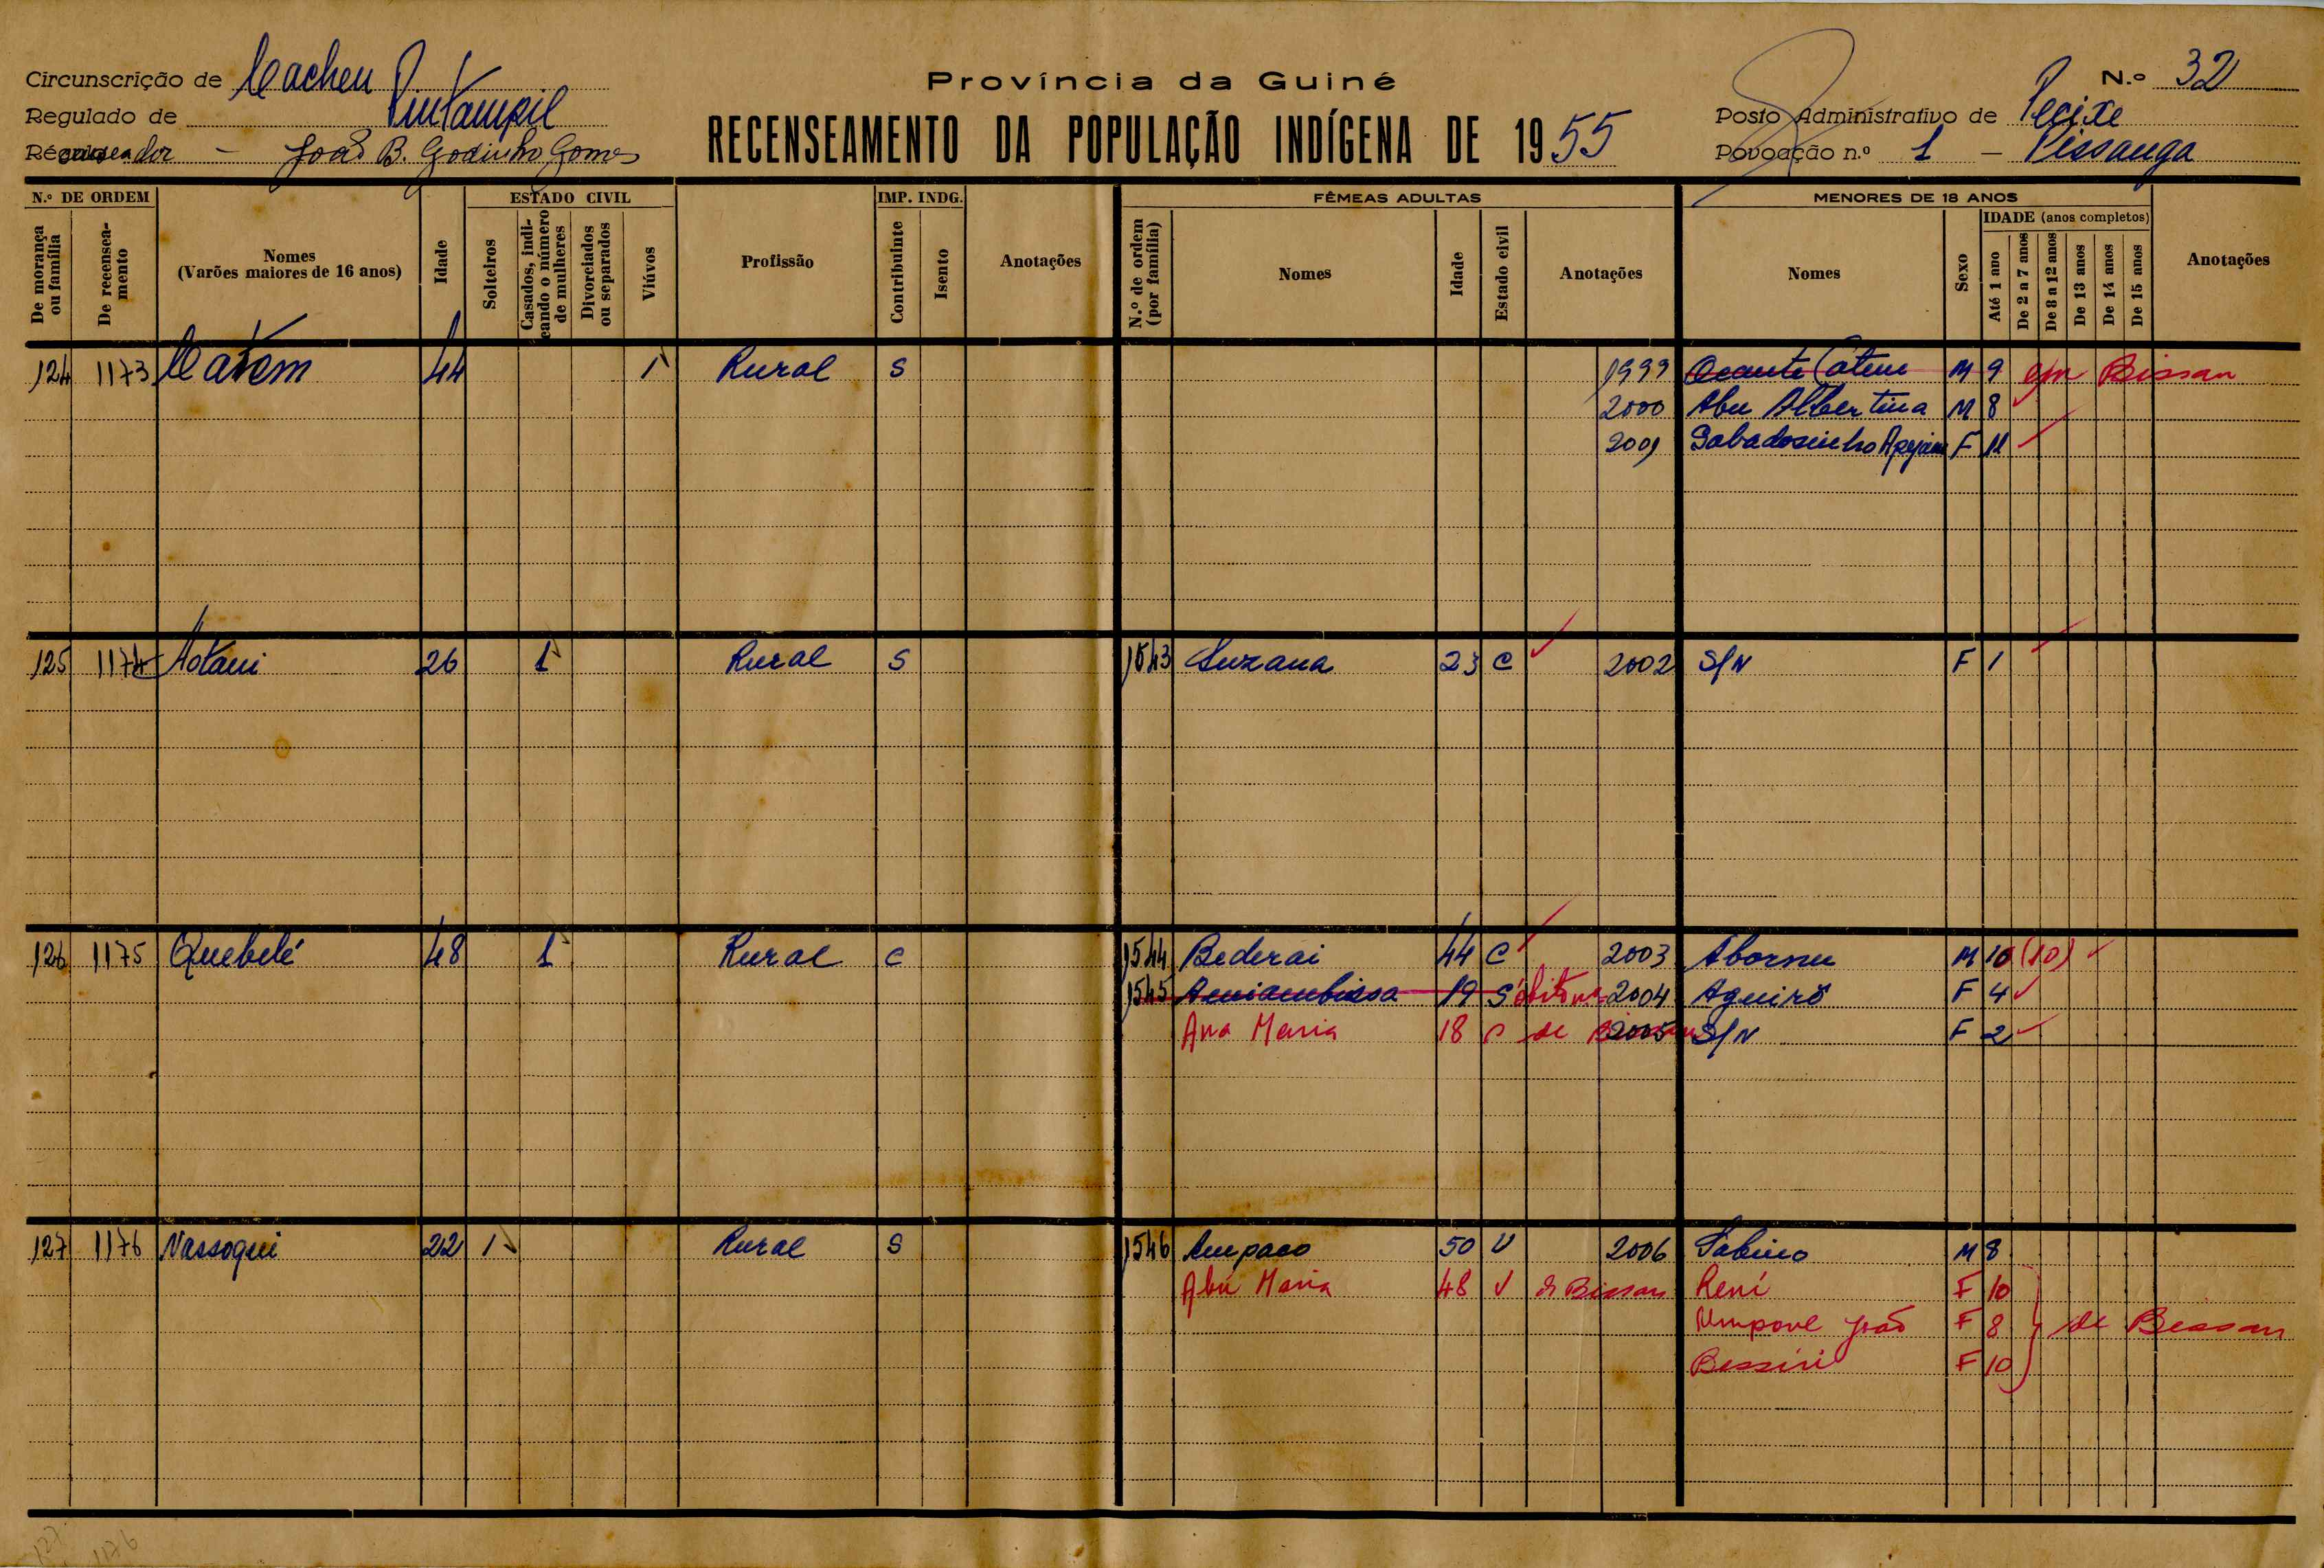 Circunscrição de Cacheu
Província da Guiné
N.º 32
Regulado de Pintampil
RECENSEAMENTO DA POPULAÇÃO INDÍGENA DE 1955
Posto Administrativo de Pecixe
Recenseador - João B. Godinho Gomes
Povoação n.º 1 - Pissanga
N.º DE ORDEM
De morança ou família
De recenseamento
Nomes
(Varões maiores de 16 anos)
Idade
ESTADO CIVIL
Solteiros
Casados, indicando o número de mulheres
Divorciados ou separados
Viúvos
Profissão
IMP. INDG.
Contribuinte
Isento
Anotações
FÊMEAS ADULTAS
N.º de ordem (por família)
Nomes
Idade
Estado civil
Anotações
MENORES DE 18 ANOS
Nomes
Sexo
IDADE (anos completos)
Até 1 ano
De 2 a 7 anos
De 8 a 12 anos
De 13 anos
De 14 anos
De 15 anos
Anotações
124 1173 Catem 44 1 Rural S 1999 Ocante Cateu M 9 em Bissau
2000 Abu Albertina M 8
2001 Sabadosinho F 11
125 1174 Aotani 26 1 Rural S 1543 Suzana 23 C 2002 S/N F 1
126 1175 Quebelé 48 1 Rural C 1544 Bederai 44 C 2003 Abornu M 10 (10)
1545 19 S óbito 2004 Aguiró F 4
Ana Maria 18 S de Bissau 2005 S/N F 2
127 1176 Nassoqui 22 1 Rural S 1546 Ampaco 50 V 2006 Sabino M 8
Abú Maria 48 V de Bissau Rení F 10
Umpone João F 8 de Bissau
Bessiri F 10
127 1176